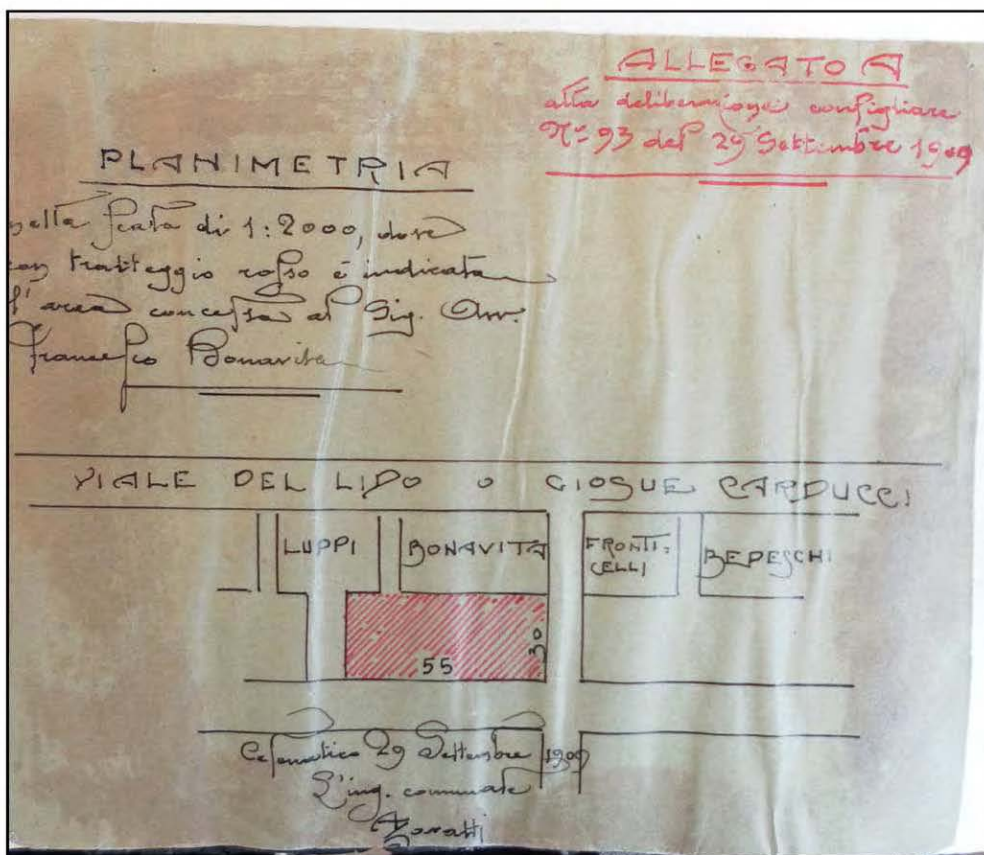 ALLEGATO A
alla deliberazione consigliare
N° 93 del 29 Settembre 1909
PLANIMETRIA
nella scala di 1:2000, dove
con tratteggio rosso è indicata
l'area concessa al Sig. Avv.
Francesco Bonavita
VIALE DEL LIDO O GIOSUE CARDUCCI
LUPPI
BONAVITA
FRONTI=
CELLI
BEDESCHI
30
55
Cesenatico 29 Settembre 1909
L'ing. comunale